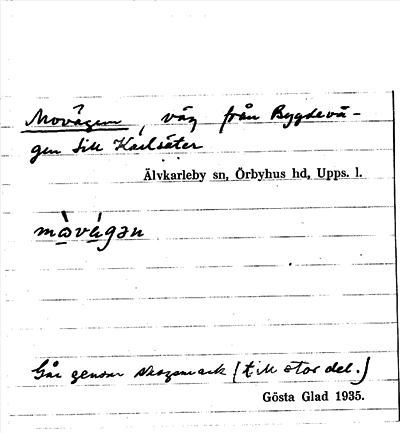 Movägen, väg från Bygdevä-
gen till Karlsäter
Älvkarleby sn, Örbyhus hd, Upps. l.
mòvä́gən
Går genom skogsmark (till stor del.)
Gösta Glad 1935.